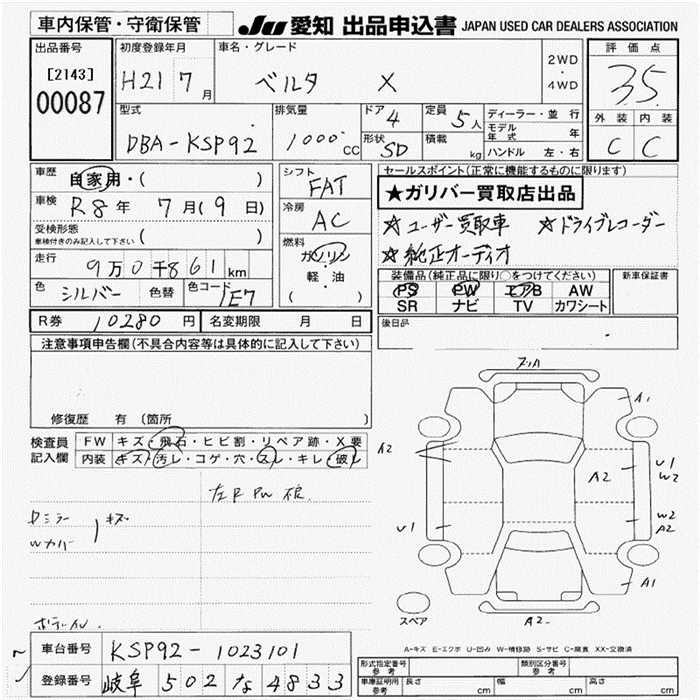 車内保管・守衛保管
JU 愛知 出品申込書 JAPAN USED CAR DEALERS ASSOCIATION
出品番号
[2143]
00087
初度登録年月
H21 7月
車名・グレード
ベルタ X
2WD
・
4WD
評価点
3.5
外装 内装
C C
型式
DBA-KSP92
排気量
1000cc
ドア 4
形状 SD
定員 5人
積載 kg
ディーラー・並行
モデル年式 年
ハンドル 左・右
車歴 自家用・( )
車検 R8年 7月(9日)
受検形態
車検付きのみ記入して下さい ( )
走行 9万0千861km
色 シルバー 色替 色コード 1E7
R券 10280円 名変期限 月 日
シフト
FAT
冷房
AC
燃料
ガソリン
軽・油
( )
セールスポイント(正常に機能するものに限ります)
★ガリバー買取店出品
☆ユーザー買取車 ☆ドライブレコーダー
☆純正オーディオ
装備品(純正品に限り○をつけてください) 新車保証書
PS PW エアB AW
SR ナビ TV カワシート
後日品
注意事項申告欄(不具合内容等は具体的に記入して下さい)
修復歴 有(箇所
検査員記入欄
FW キズ・飛石・ヒビ割・リペア跡・X要
内装 キズ・汚レ・コゲ・穴・スレ・キレ・破レ
左R PW
Dミラー
Wカバー
キズ
A1
A2
A2
U1
W2
U1
W2
A2
A1
A2
スペア
A-キズ E-エクボ U-凹み W-補修跡 S-サビ C-腐食 XX-交換済
車台番号 KSP92-1023101
登録番号 岐阜 502 な 4833
形式指定番号 参考
類別区分番号 参考
車庫証明用 参考 長さ cm 幅 cm 高さ cm